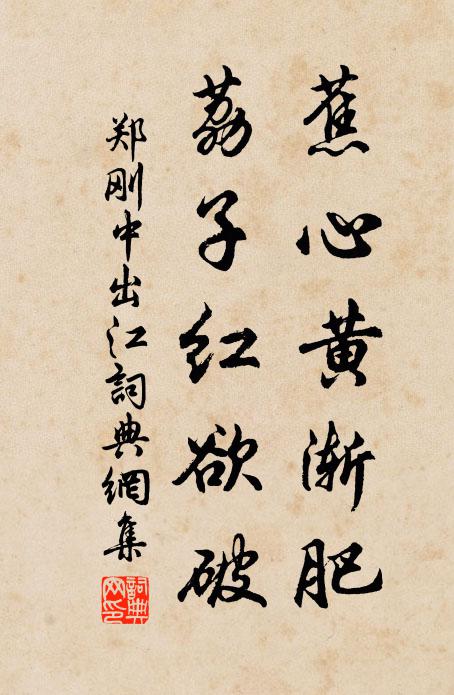 蕉心黄渐肥
荔子红欲破
郑刚中出江詞典網集
詞典網印